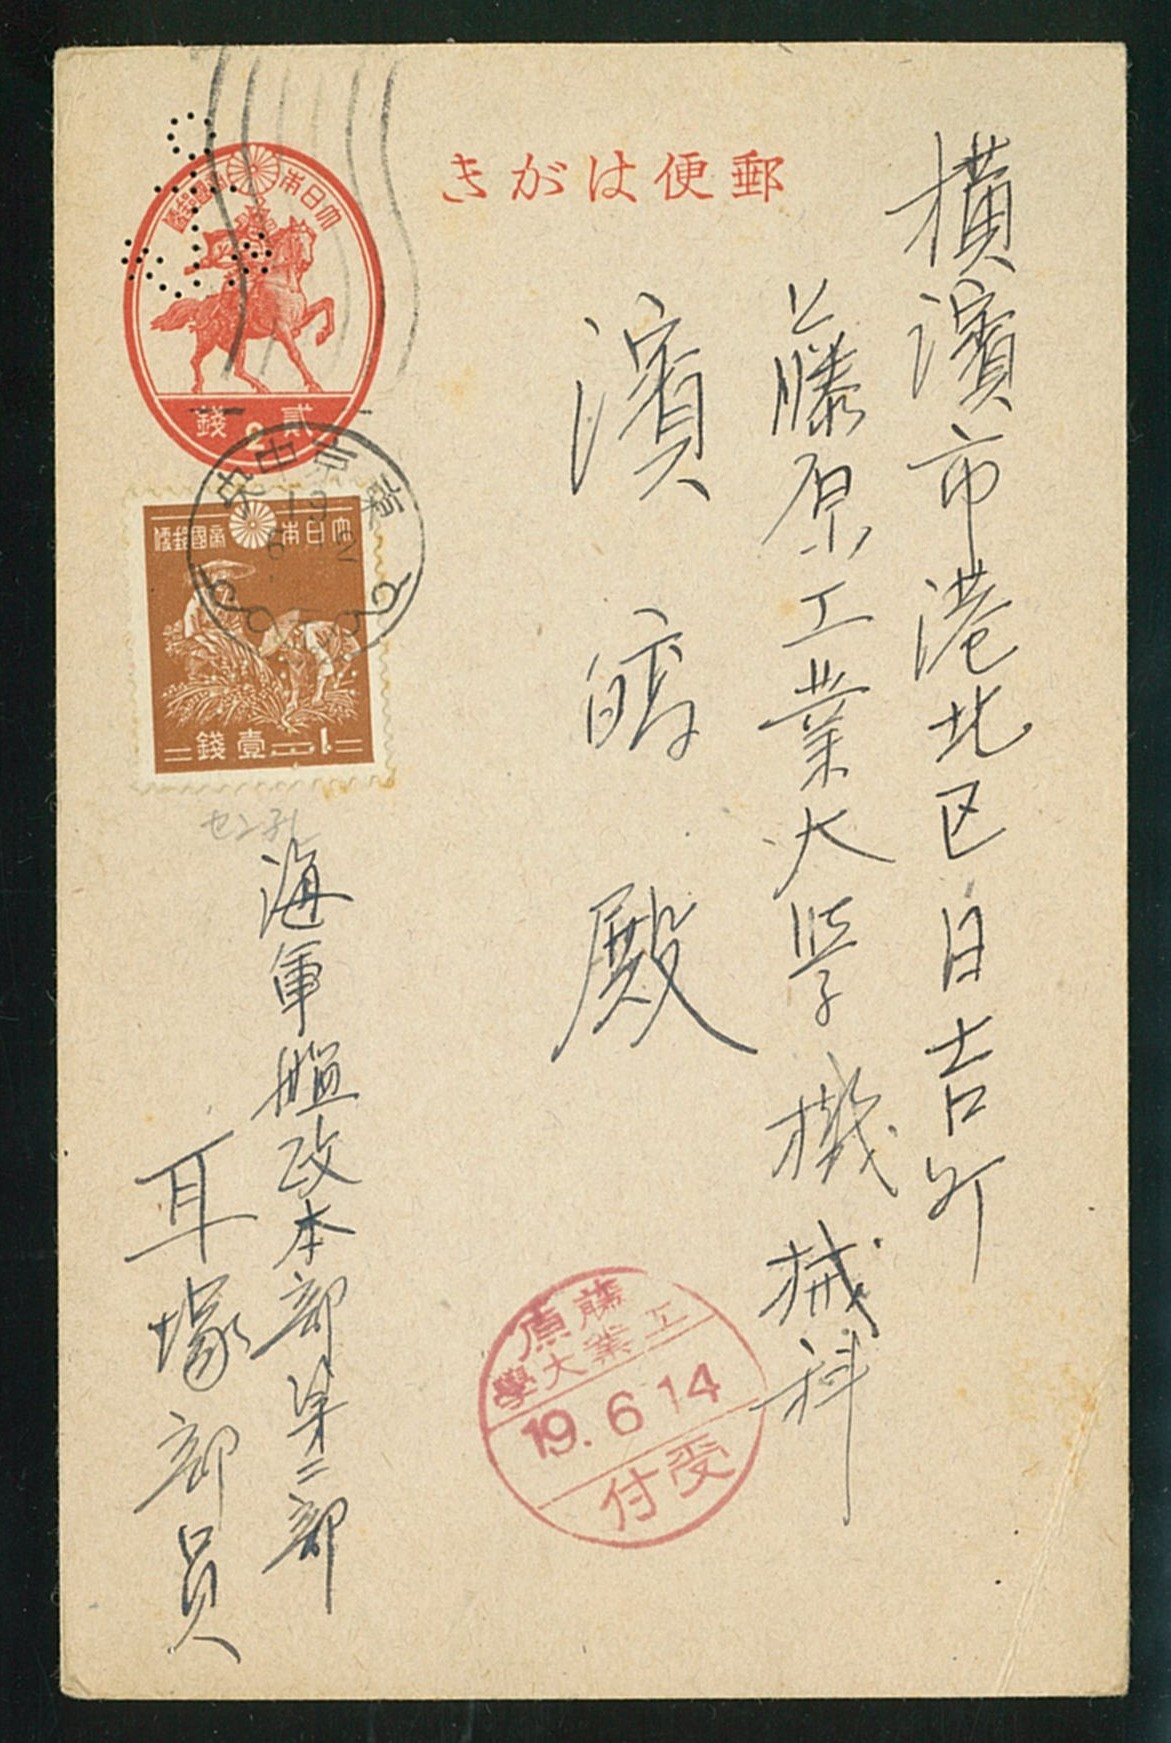 郵便はがき
大日本帝國郵便
貳錢
2
大日本帝國郵便
壹錢
1
東京中央
19
横濱市港北区日吉町
藤原工業大学機械科
濱
殿
海軍艦政本部第二部
耳塚部員
センコ孔
藤原
工業大學
19.6.14
受付